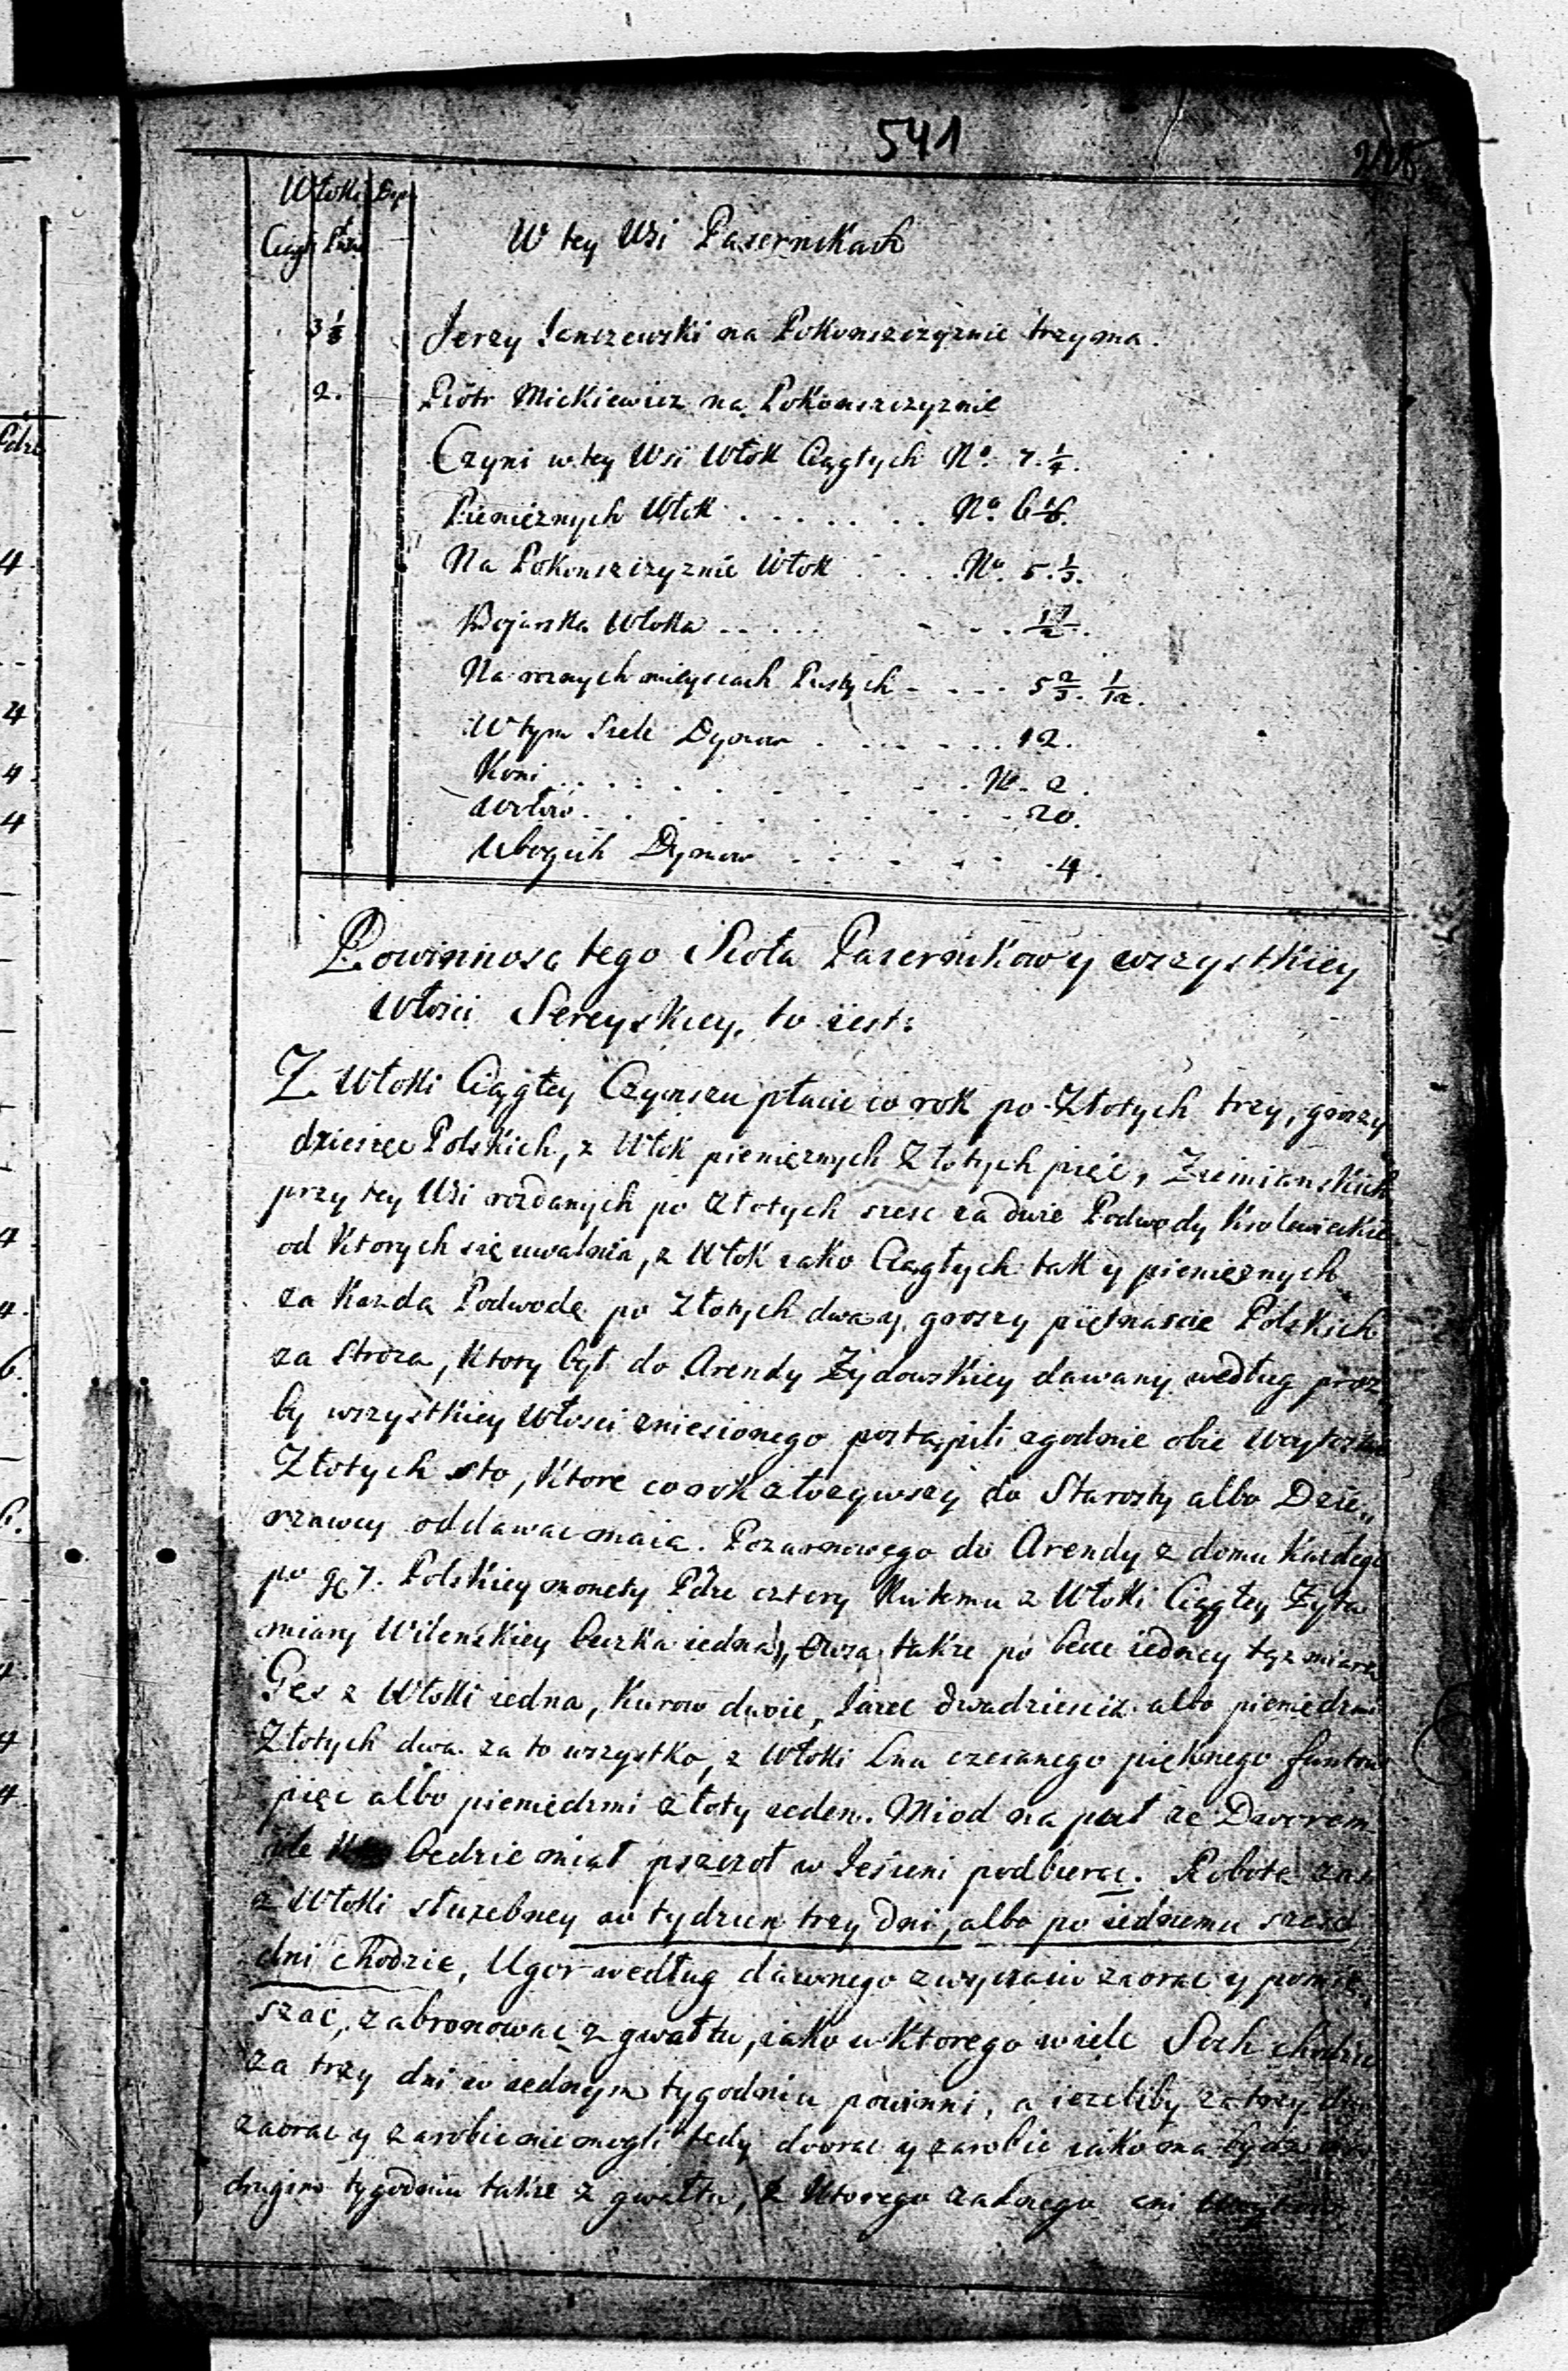 541
Włoki
Ciągł
W tey Wsi Pasernikach
3 1/3 Jerzy Janczewski na Pokonszczyznie trzyma.
2. Piotr Mickiewicz na Pokonszczyznie
Czyni w tey Wsi Włok Ciągłych No. 7. 1/4.
Pieniężnych Włok . . . . . . . No. 6 1/6.
Na Pokonszczyznie Włok . . . . No. 5. 1/3.
Bojarska Włoka . . . . .
Na roznych mieyscach Pustych - - - - 5 2/3. 1/12.
W tym Siele Dymow . . . . . . 12.
Koni . . . . . . . . . N. 2.
Wołow . . . . . . . . . 20.
Ubogich Dymow . . . . . . 4.
Powinnosc tego Sioła Pasernikow y wszystkiey
Włosci Sereyskiey, to iest:
Z Włoki Ciągłey Czynszu płacić co rok po Złotych trzy, groszy
dziesięc Polskich, z Włok pieniężnych Złotych pięć, Ziemianskich
przy tey Wsi rozdanych po Złotych szesc za dwie Podwody Krolewieckie
od Ktorych się uwalnia, z Włok iako Ciągłych tak y pieniężnych
za Kazdą Podwodę po Złotych dwa y groszy piętnascie Polskich
za Stroza, Ktory był do Arendy Żydowskiey dawany według proz
by wszystkiey Włosci zniesionego postąpili zgodnie obie
Złotych sto, Ktore co rok złozywszy do Starosty albo Dzie„
rzawcy oddawac maią. Pozarnowego do Arendy z domu Kazdego
po g. 7. Polskiey monety cztery z Włoki Ciągłey Żyta
miary Wilenskiey beczka iedna, Owsa takze po becce iedney tąż miarą
Gęs z Włoki iedna, Kurow dwoie, Jaiec dwadziescia albo pieniędzmi
Złotych dwa za to wszystko, z Włoki Lnu czesanego pięknego funtow
pięc albo pieniędzmi złoty ieden. Miod na puł ze Dworem
będzie miał pszczoł w Jesieni podbierac. Robotę zas
z Włoki słuzebney w tydzień trzy dni, albo po iednemu szesc
dni chodzic, Ugor według dawnego zwyczaiu zaorac y pomie„
szac, zabronowac z gwałtu, iako u Ktorego wiele Soch chodzic
za trzy dni w iednym tygodniu powinni, a iezeliby za trzy dni
zaorac y zarobic nie mogli tedy dworac y zarobic iako ma bydz
drugim tygodniu takze z gwałtu, z Ktorego zadnego ani